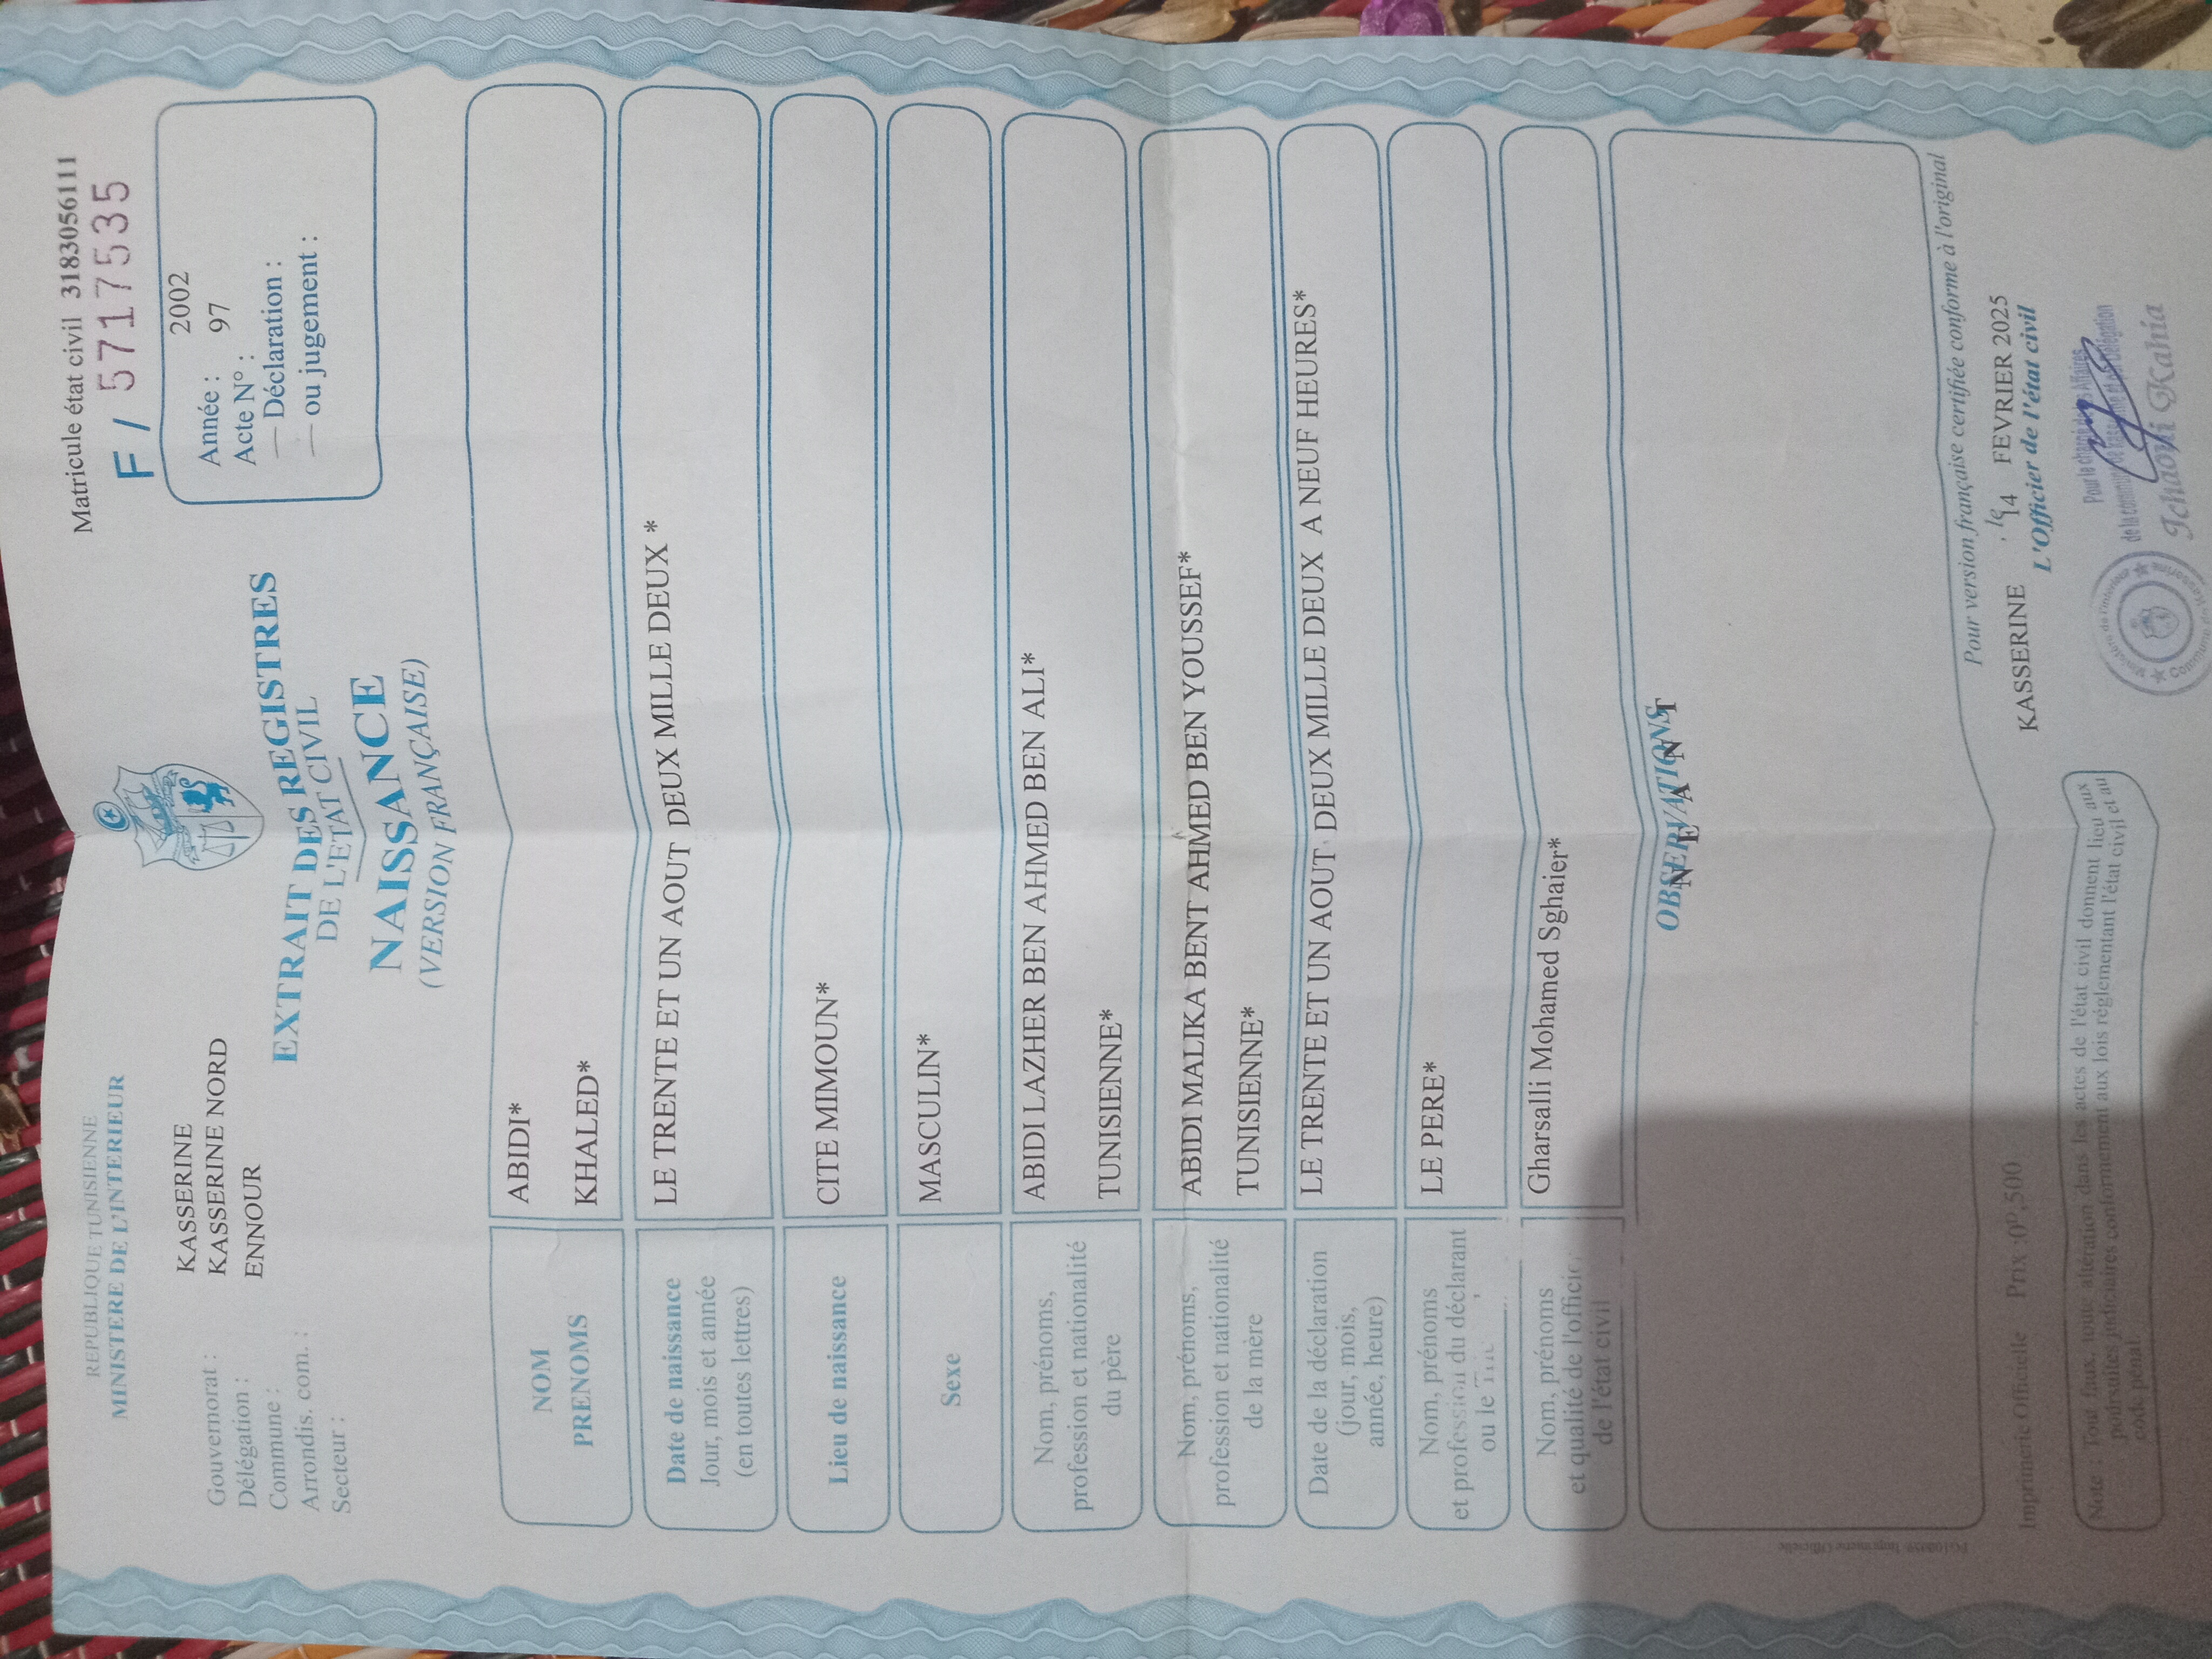 REPUBLIQUE TUNISIENNE
MINISTERE DE L'INTERIEUR
Matricule état civil 3183056111
F / 5717535
Gouvernorat : KASSERINE
Délégation : KASSERINE NORD
Commune : ENNOUR
Arrondis. com. :
Secteur :
Année : 2002
Acte N° : 97
— Déclaration :
— ou jugement :
EXTRAIT DES REGISTRES
DE L'ETAT CIVIL
NAISSANCE
(VERSION FRANÇAISE)
NOM ABIDI*
PRENOMS KHALED*
Date de naissance
Jour, mois et année
(en toutes lettres)
LE TRENTE ET UN AOUT DEUX MILLE DEUX *
Lieu de naissance CITE MIMOUN*
Sexe MASCULIN*
Nom, prénoms,
profession et nationalité
du père
ABIDI LAZHER BEN AHMED BEN ALI*
TUNISIENNE*
Nom, prénoms,
profession et nationalité
de la mère
ABIDI MALIKA BENT AHMED BEN YOUSSEF*
TUNISIENNE*
Date de la déclaration
(jour, mois,
année, heure)
LE TRENTE ET UN AOUT DEUX MILLE DEUX A NEUF HEURES*
Nom, prénoms
et profession du déclarant
ou le
LE PERE*
Nom, prénoms
et qualité de l'officier
de l'état civil
Gharsalli Mohamed Sghaier*
OBSERVATIONS
N E A N T
Pour version française certifiée conforme à l'original
KASSERINE , le 14 FEVRIER 2025
L'Officier de l'état civil
Pour le chargé des Affaires
de la commune de Kasserine et délégation
Ichaoui Kahia
Ministère de l'intérieur
Commune de Kasserine
Imprimerie Officielle Prix :0ᴰ,500
Note : Tout faux, toute altération dans les actes de l'état civil donnent lieu aux
poursuites judiciaires conformément aux lois réglementant l'état civil et au
code pénal.
Imprimerie Officielle